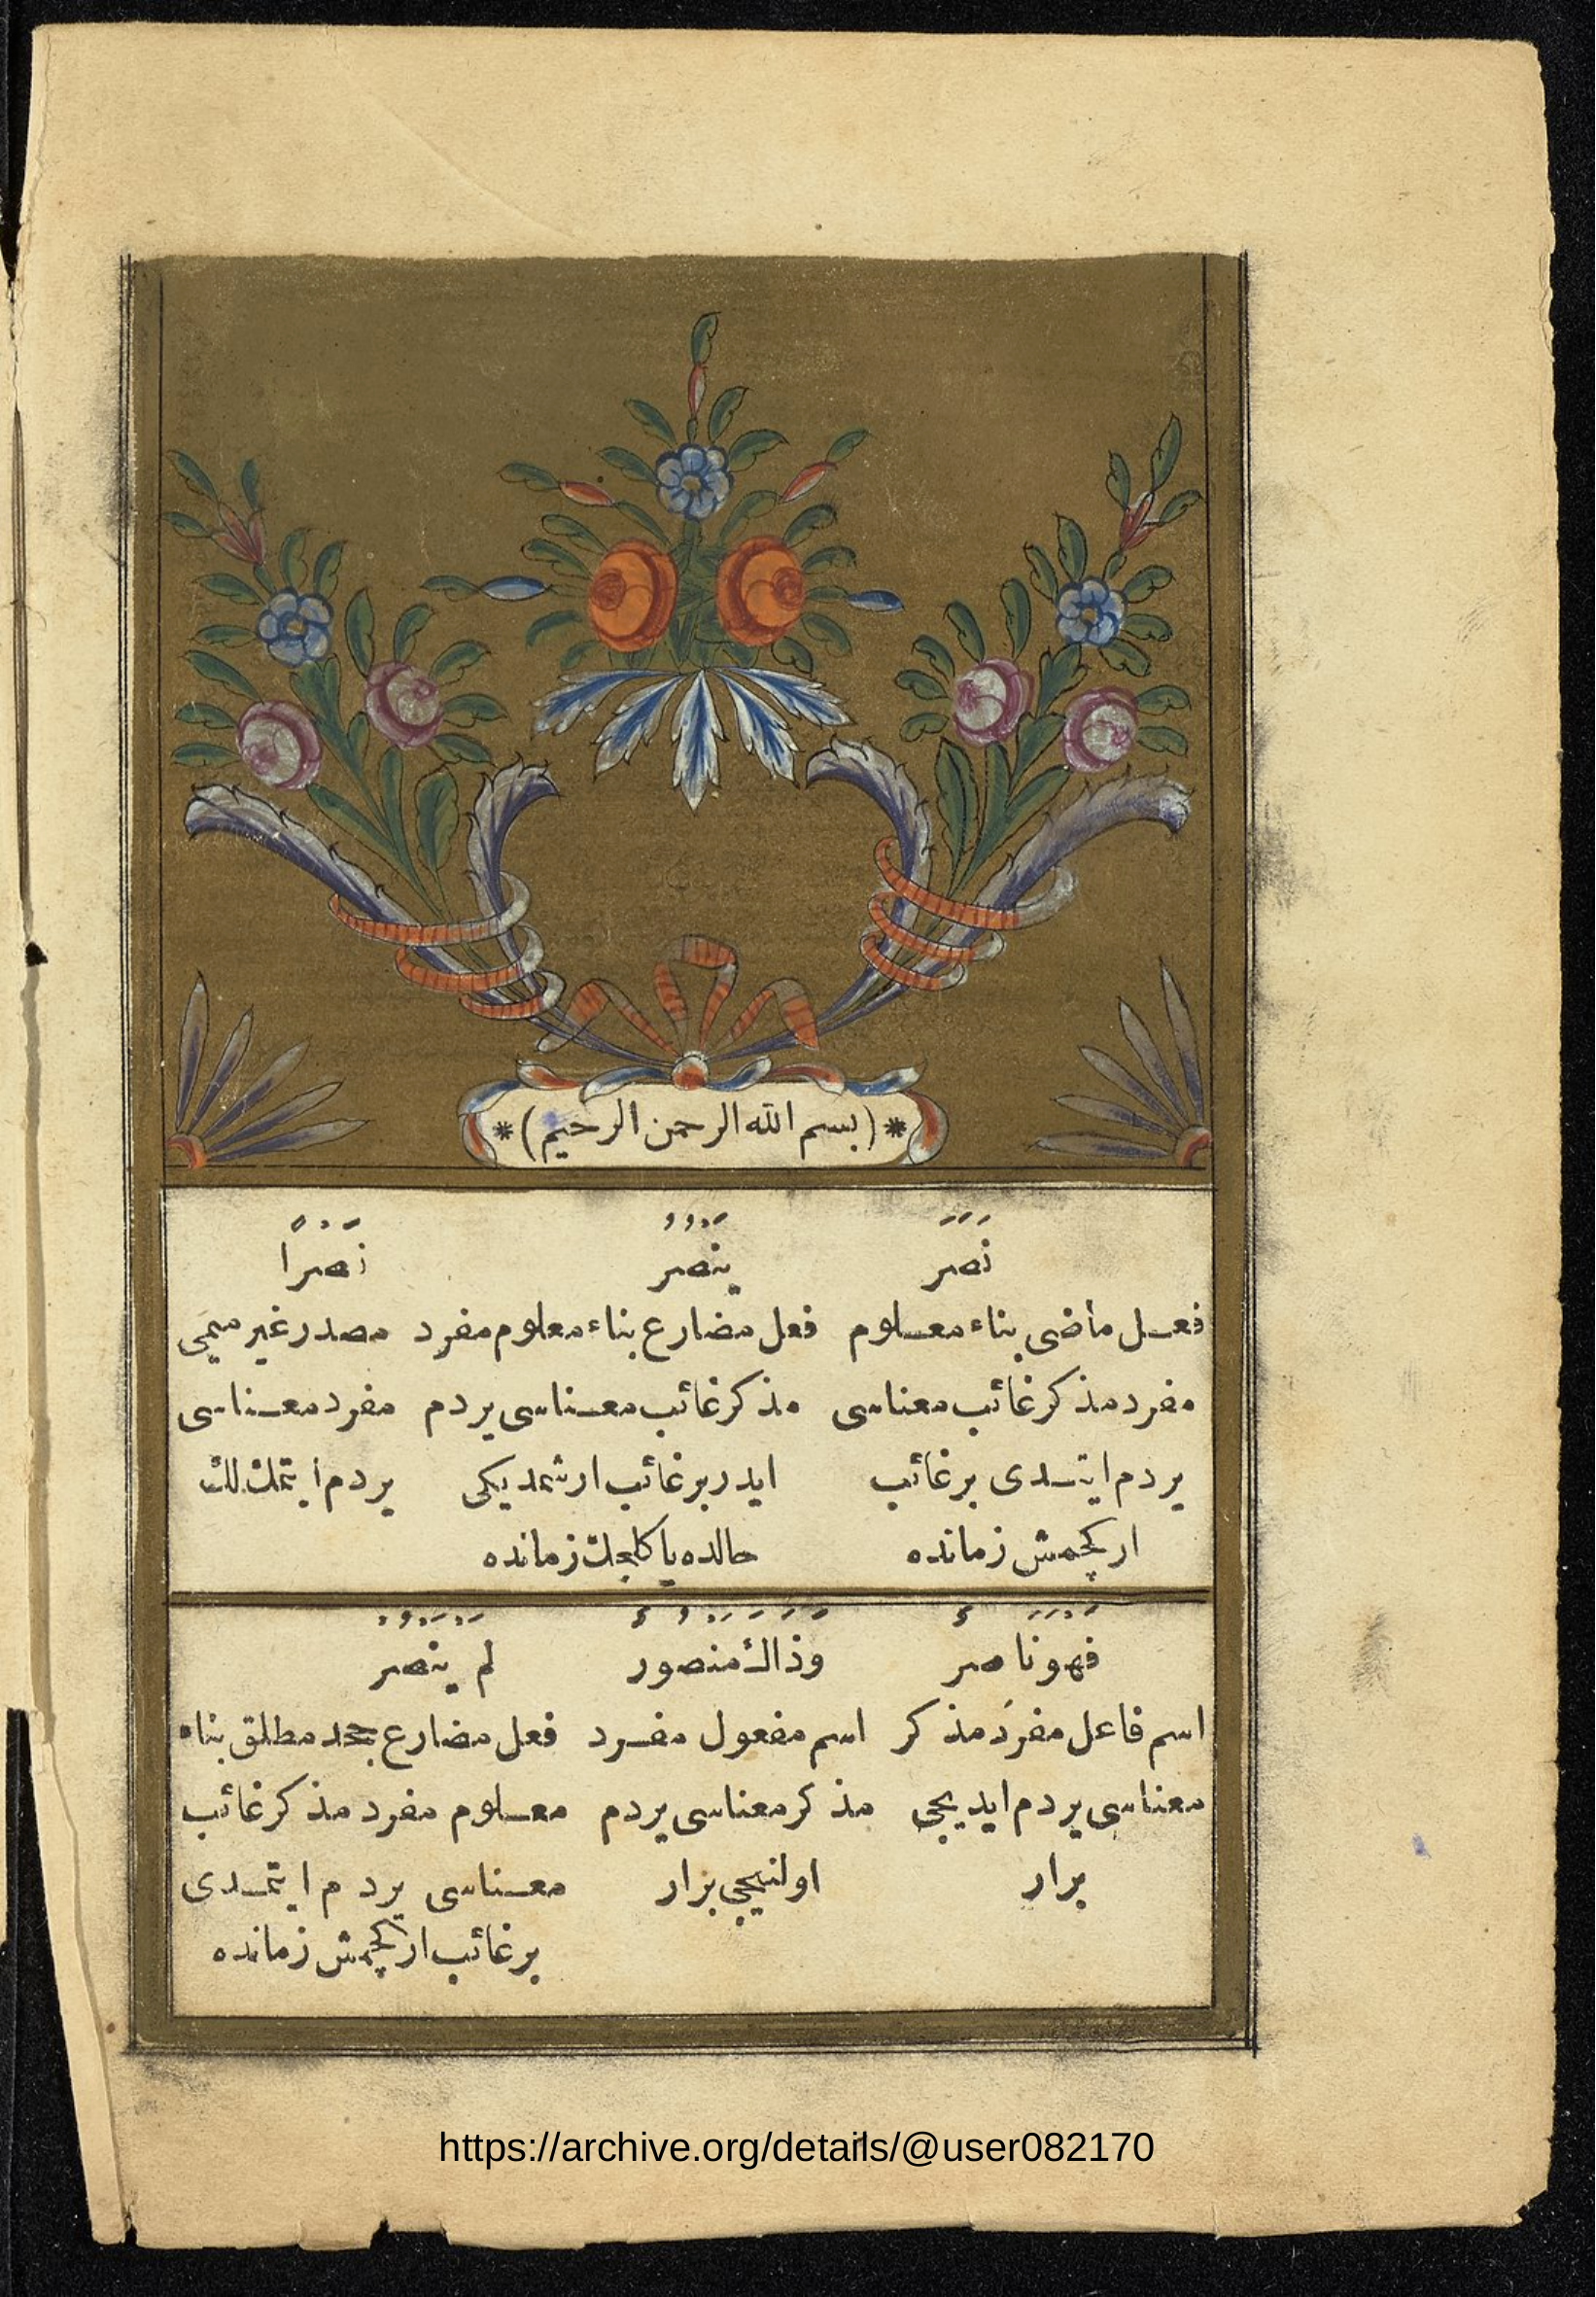 *(بسم الله الرحمن الرحيم)*
نَصَرَ
فعل ماضى بناء معلوم
مفرد مذكر غائب معناسى
يردم ايتدى برغائب
ار كچمش زمانده
يَنْصُرُ
فعل مضارع بناء معلوم مفرد
مذكر غائب معناسى يردم
ايدر برغائب ار شمديكى
حالده يا كلجك زمانده
نَصْرًا
مصدر غير ميمى
مفرد معناسى
يردم ايتمكلك
فَهُوَ نَاصِرٌ
اسم فاعل مفرد مذكر
معناسى يردم ايديجى
برار
وَذَاكَ مَنْصُورٌ
اسم مفعول مفرد
مذكر معناسى يردم
اولنيجى برار
لَمْ يَنْصُرْ
فعل مضارع جحد مطلق بناء
معلوم مفرد مذكر غائب
معناسى يردم ايتمدى
برغائب ار كچمش زمانده
https://archive.org/details/@user082170